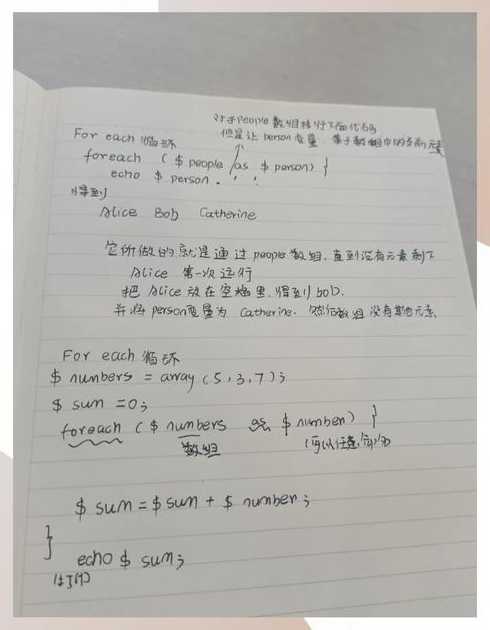 对于people数组执行下面代码
但是让 person变量 等于数组中的当前元素
For each 循环
foreach ($ people as $ person) {
echo $ person . ' ';
得到
Alice Bob Catherine
它所做的就是通过 people 数组,直到没有元素剩下
Alice 第一次运行
把 Alice 放在空格里,得到 bob.
并将 person变量为 Catherine. 然后数组没有其他元素
For each 循环
$ numbers = array (5, 3, 7);
$ sum = 0;
foreach ($ numbers as $ number) {
数组 (可以任意命名)
$ sum = $ sum + $ number;
}
echo $ sum;